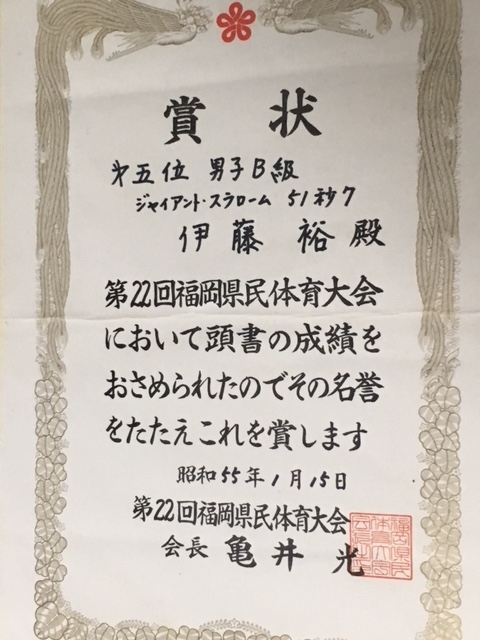 賞状
第五位 男子B級
ジャイアント・スラローム 51秒7
伊藤 裕殿
第22回福岡県民体育大会
において頭書の成績を
おさめられたのでその名誉
をたたえこれを賞します
昭和55年1月15日
第22回福岡県民体育大会
会長 亀井 光